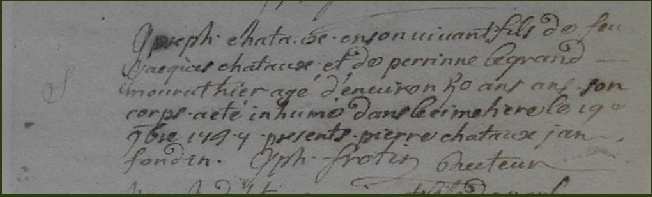 Joseph chataux en son vivant fils de feu
Jacques chataux et de perrinne legrand
mourut hier agé d'environ 50 ans ans son
corps a eté inhumé dans le cimetiere le 19e
9bre 1747 presents pierre chataux jan
fondin. Jph. frotin Recteur